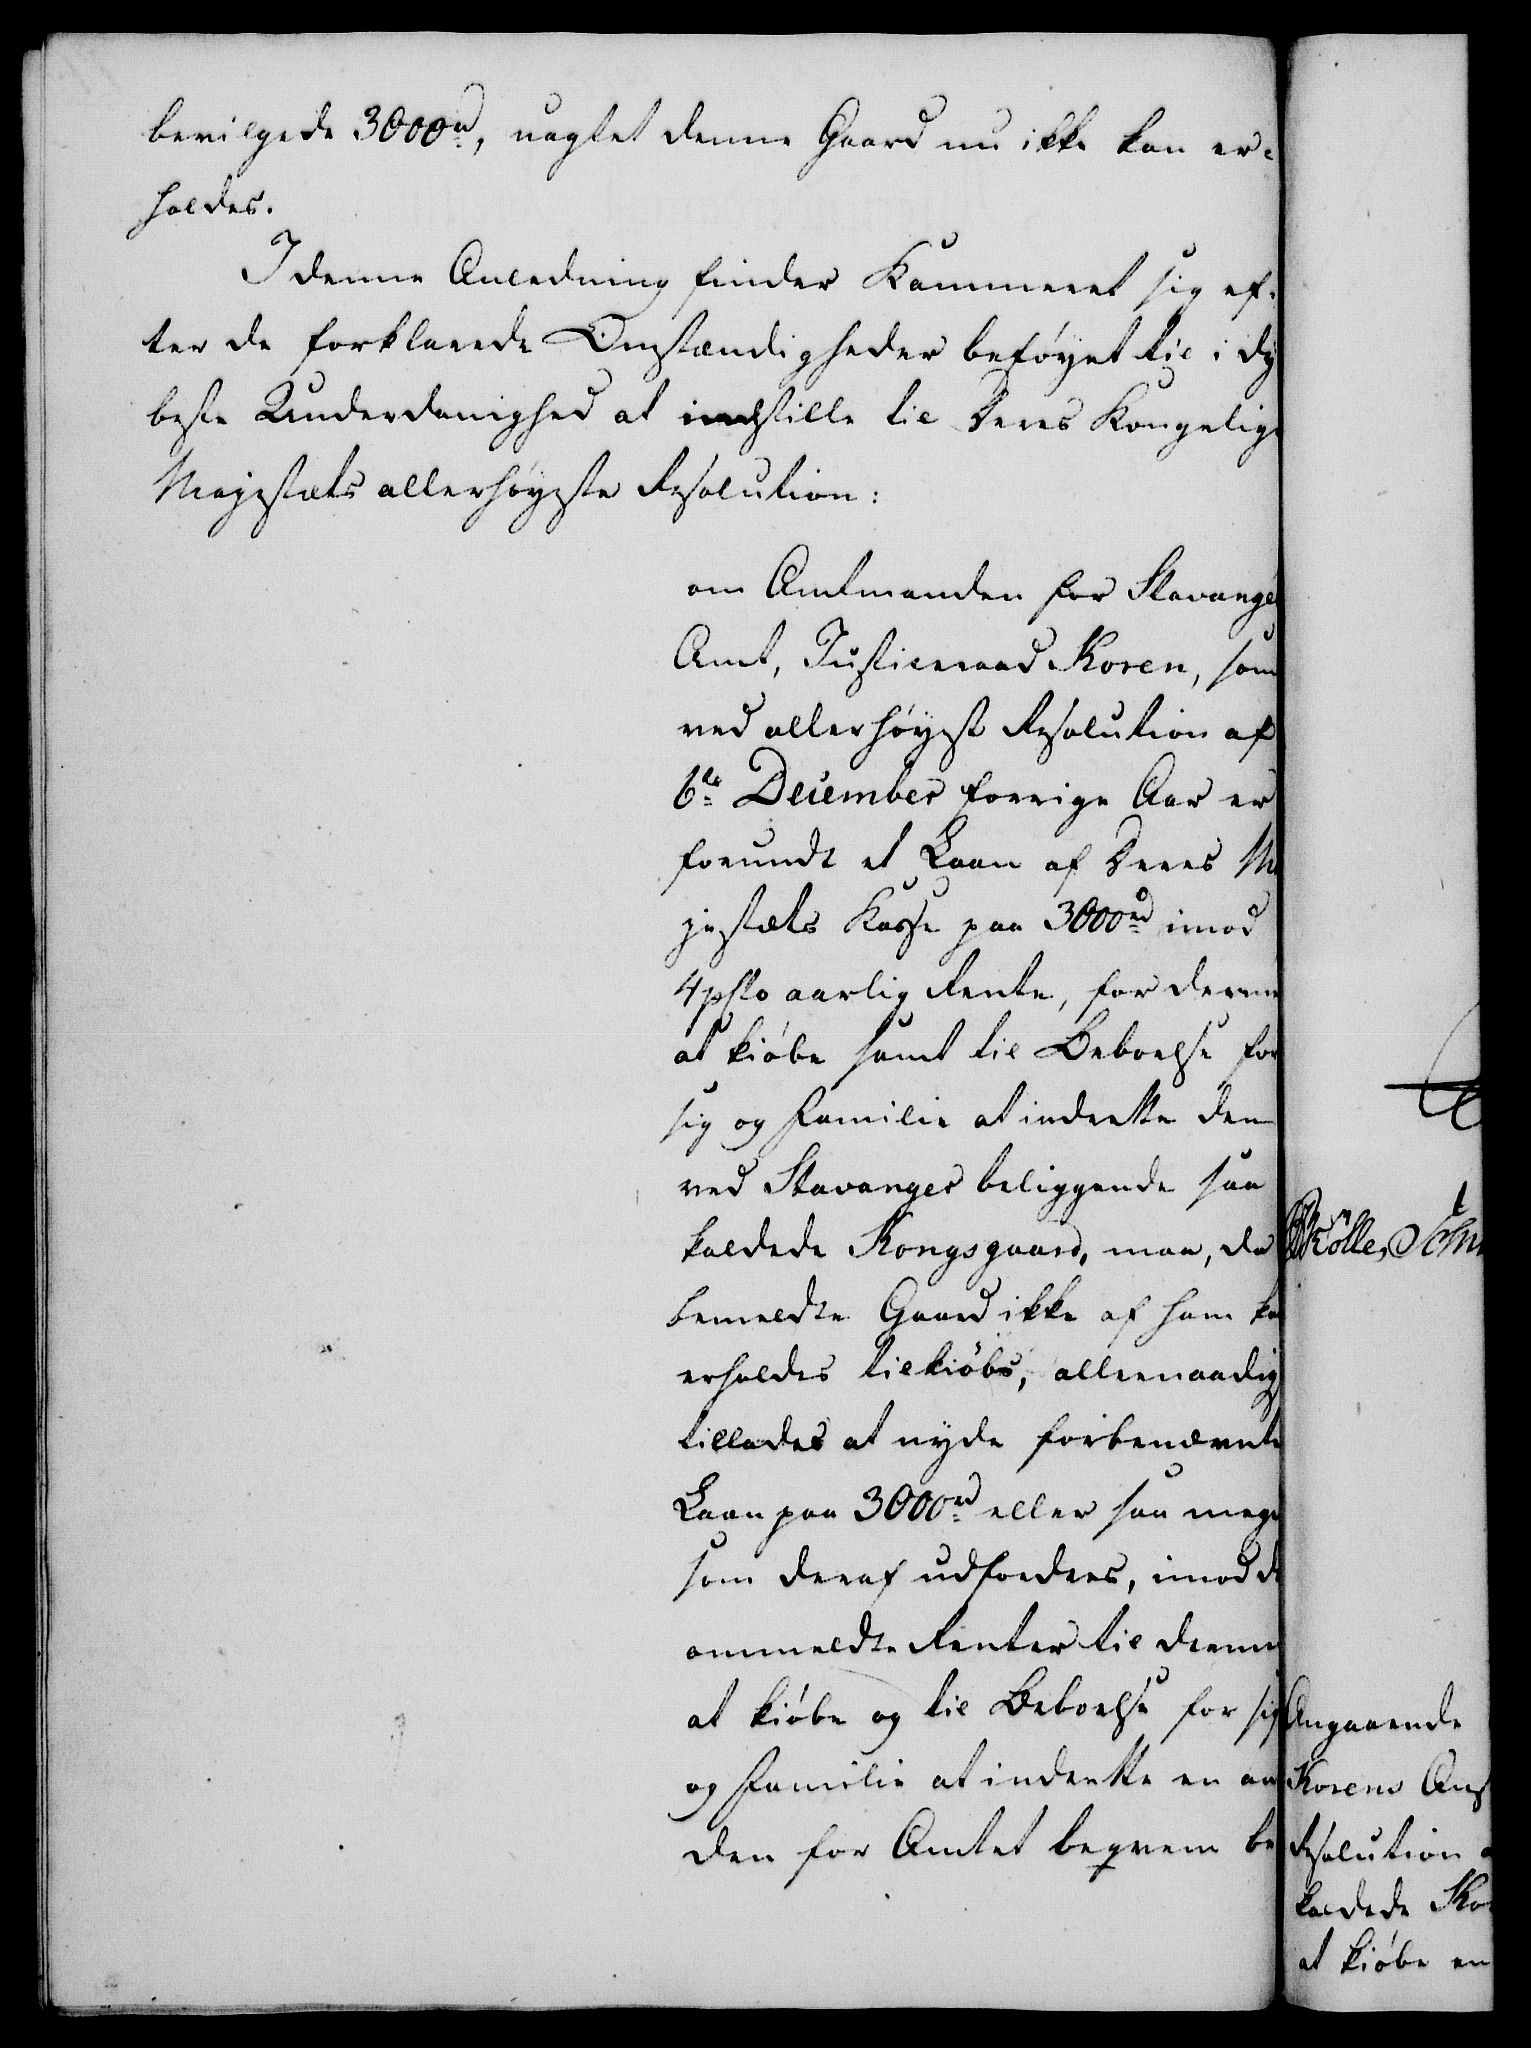 bevilgede 3000 rd, uagtet denne Gaard nu ikke kan er-
holdes.
I denne Anledning finder Kammeret sig ef-
ter de forklarede Omstændigheder beføyet til i dy
beste Underdanighed at indstille til Deres Kongelig
Majestæts allerhøyeste Resolution:
om Amtmanden for Stavange
Amt, Justiceraad Koren, som
ved allerhøyest Resolution af
6te December forrige Aar er
forundt et Laan af Deres Ma
jestæts Kasse paa 3000 rd imod
4 pCto aarlig Rente, for derme
at kiøbe samt til Beboelse for
sig og Familie at indrette den
ved Stavanger beliggende saa
kaldede Kongsgaard, maa, da
bemeldte Gaard ikke af ham ka
erholdes tilkiøbs, allernaadig
tillades at nyde forbenævnte
Laan paa 3000 rd eller saa mege
som deraf udfordres, imod d
ommeldte Renter til derme
at kiøbe og til Beboelse for sig
og Familie at indrette en an
den for Amtet beqvem be
Kølle, Schm
Angaaende
Korens Ans
Resolution a
kaldede Ko
at kiøbe en